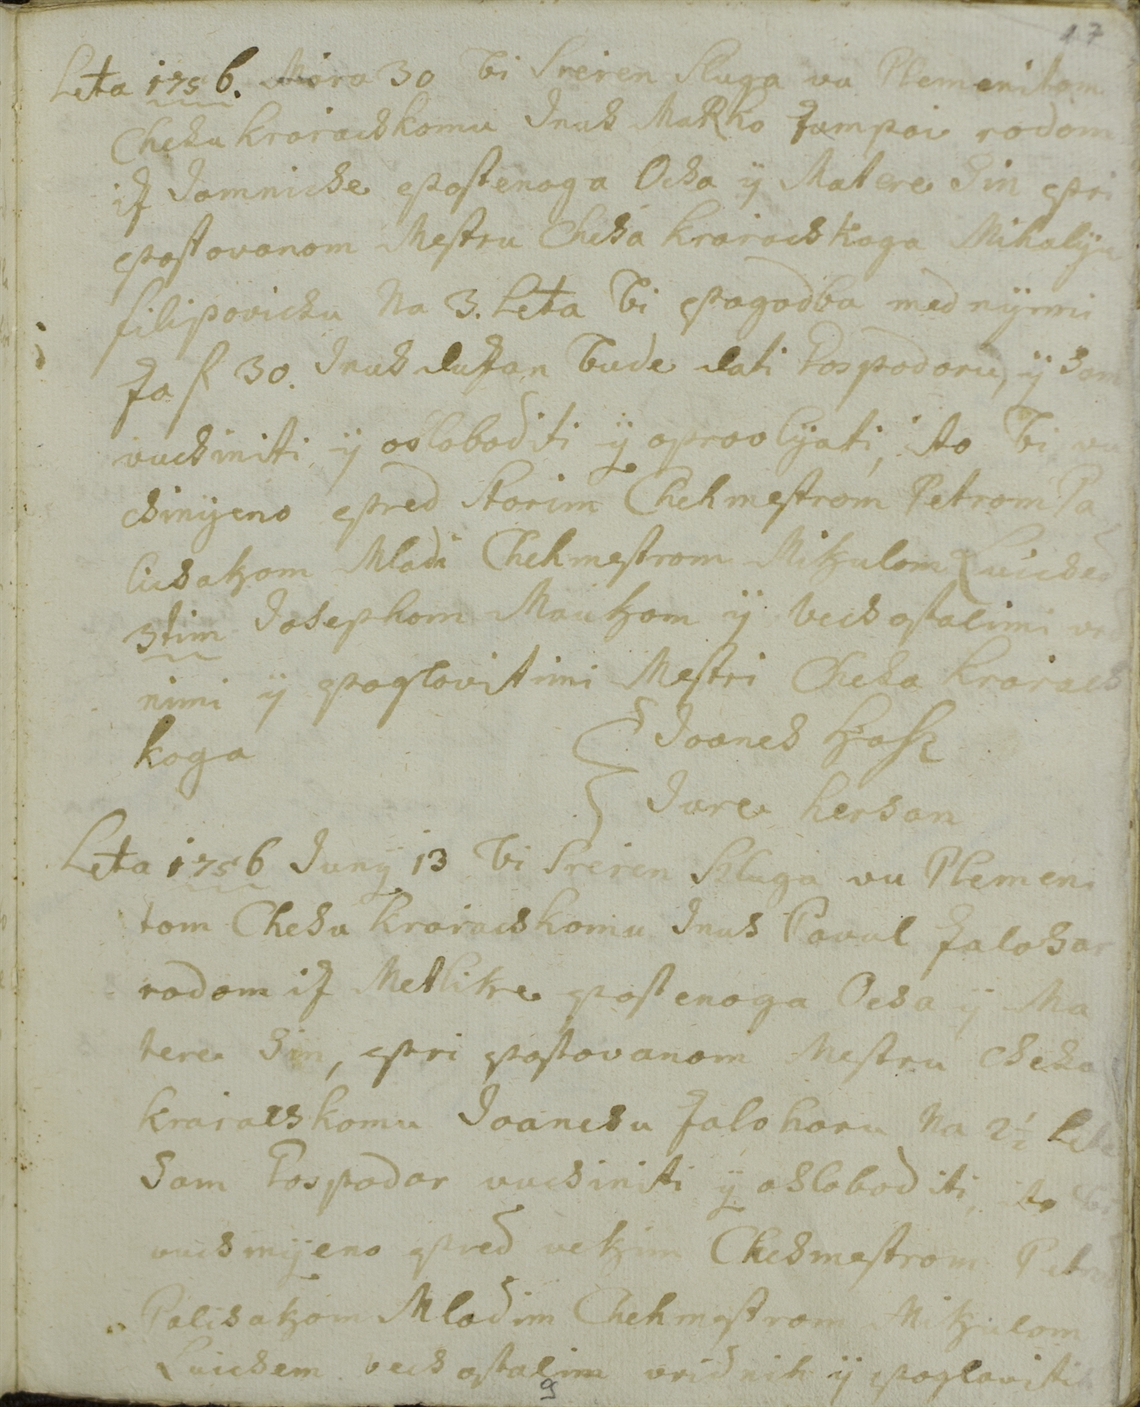 17
Leta 1756. Mara 30 bi Sreien Sluga vu Plemenitom
Chehu kraiachkomu Inus Marko Jumpai rodom
iz Jamnicke postenoga Ocha ÿ Matere Sin pri
postovanom Mestru Cheha kraiachkoga Mihalÿu
filipovichu Na 3. Leta bi pogodba med nÿmi
za f 30. Inus duzan bude dati Gospodaru, ÿ Sam
vuchiniti ÿ osloboditi ÿ opravlÿati, to bi vu
chinÿeno pred starim Chehmestrom Petrom Pa
lichakom Mladi Chehmestrom Mikulom Luiche
stim Josephom Maukom ÿ vech ostalimi vrid
nimi ÿ poglavitimi Mestri Cheha kraiach
koga
Joanes
Jure hersan
Leta 1756 Junÿ 13 bi Sreien Sluga vu Plemeni
tom Chehu kraiachkomu Inus Paval Jalohar
rodom iz Metlike postenoga Ocha ÿ Ma
tere Sin, pri postovanom Mestru Cheha
kraiachkomu Joanesu Jaloharu Na 2½ Leta
Sam Gospodar vuchiniti ÿ osloboditi, to bi
vuchinÿeno pred vekim Chehmestrom Petro
Palichakom Mladim Chehmestrom Mikulom
Luichem vech ostalim vridnih ÿ poglaviti
9